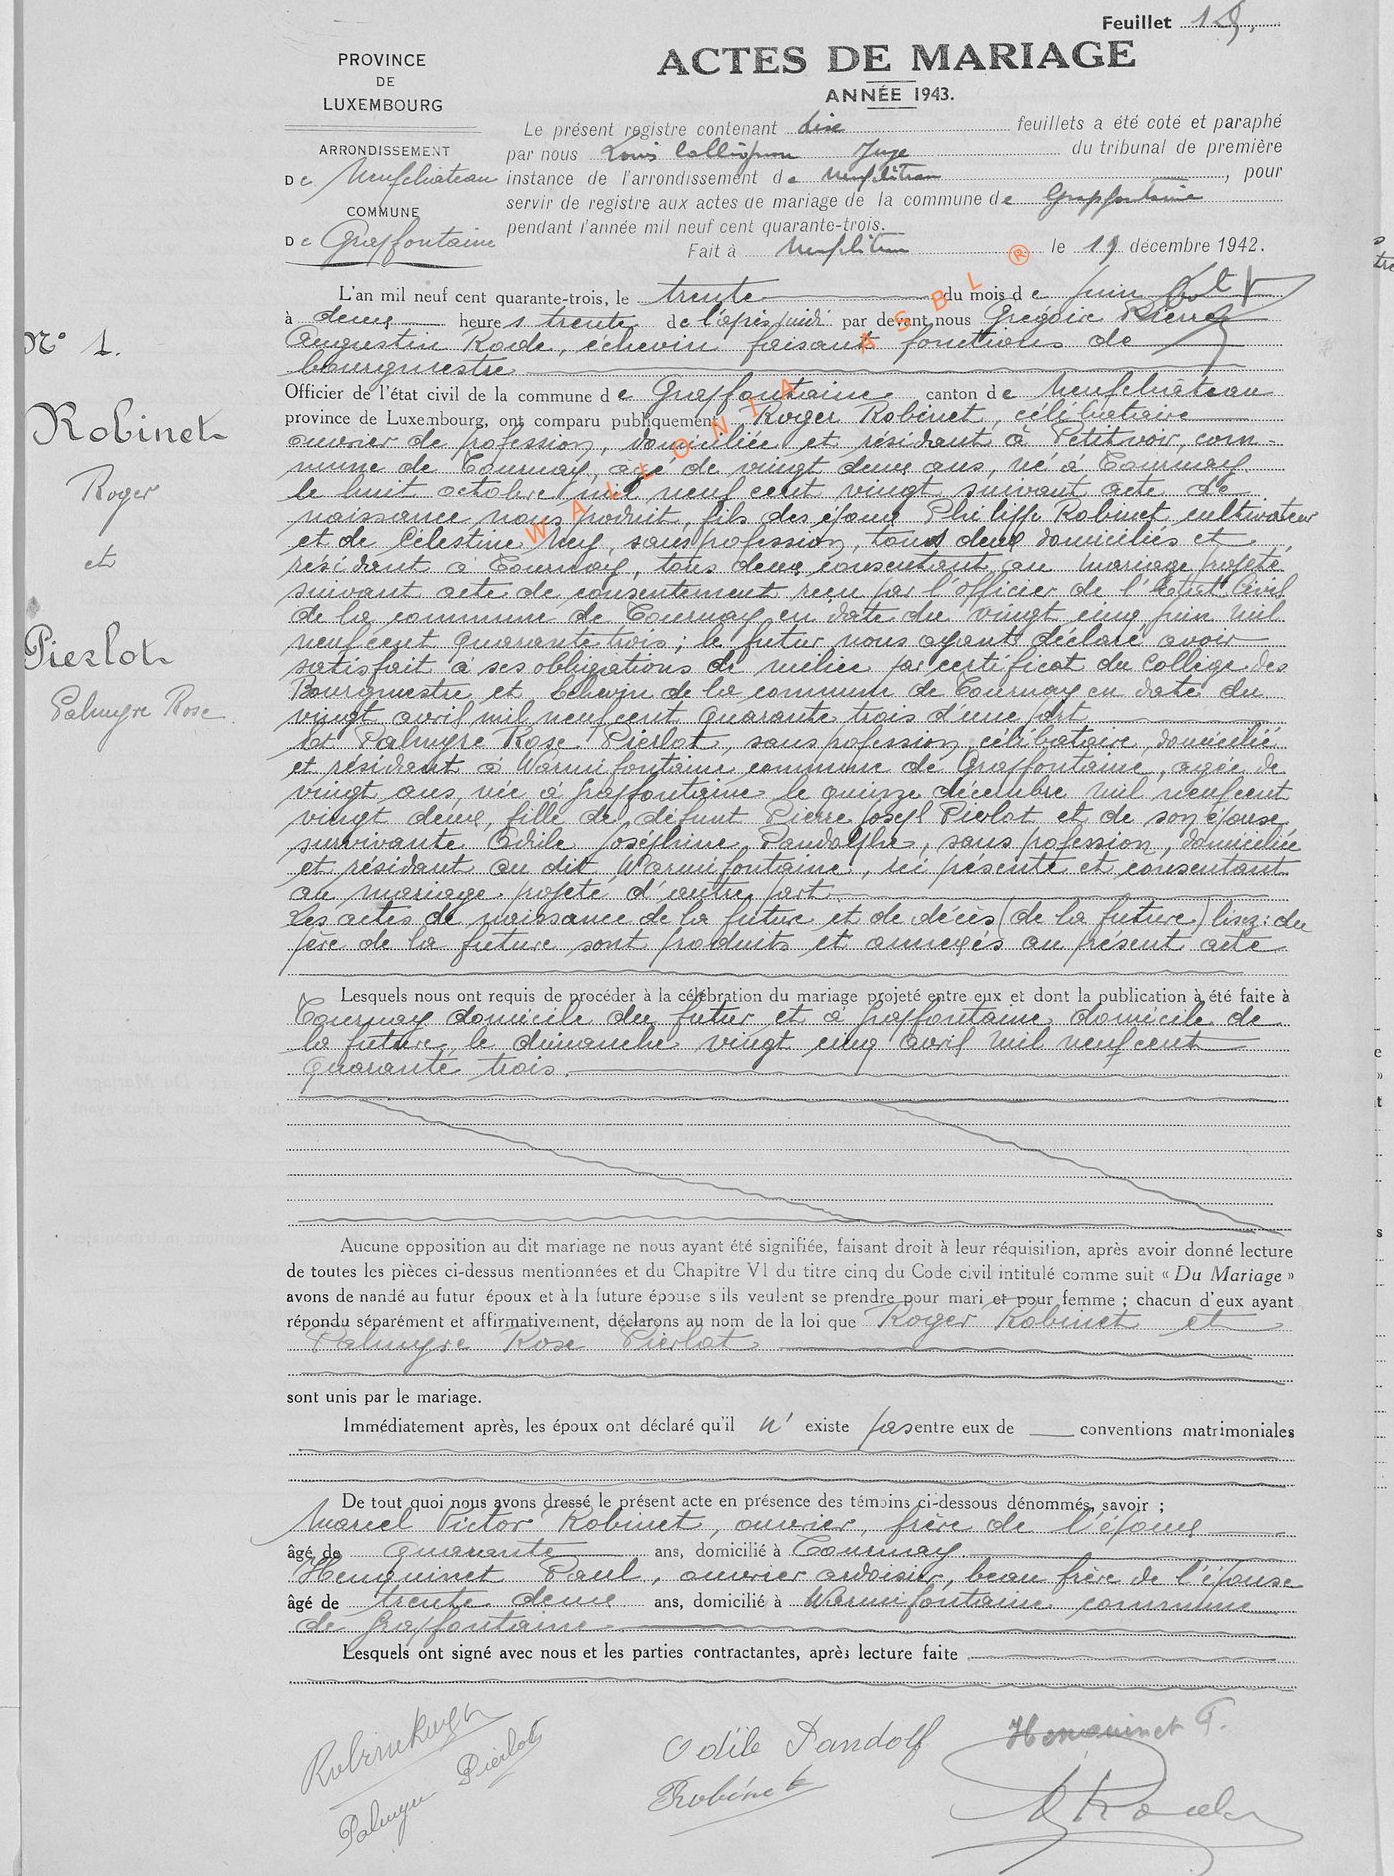 Feuillet 1
PROVINCE
DE
LUXEMBOURG
ARRONDISSEMENT
De Neufchâteau
COMMUNE
De Graffontaine
ACTES DE MARIAGE
ANNÉE 1943.
Le présent registre contenant dix feuillets a été coté et paraphé
par nous Louis Juge du tribunal de première
instance de l'arrondissement de Neufchâteau, pour
servir de registre aux actes de mariage de la commune de Graffontaine
pendant l'année mil neuf cent quarante-trois.
Fait à Neufchâteau le 19 décembre 1942.
WALLONIA ASBL ®
N° 1.
Robinet
Roger
et
Pierlot
Palmyre Rose
L'an mil neuf cent quarante-trois, le trente du mois de juin
à deux heures trente de l'après midi par devant nous Grégoire Pierre
Augustin Rode, échevin faisant fonctions de
bourgmestre
Officier de l'état civil de la commune de Graffontaine canton de Neufchâteau
province de Luxembourg, ont comparu publiquement Roger Robinet, célibataire
ouvrier de profession, domiciliée et résidant à Petitvoir, com-
mune de Tournay, âgé de vingt deux ans, né à Tournay
le huit octobre mil neuf cent vingt suivant acte de
naissance nous produit, fils des époux Philippe Robinet cultivateur
et de Célestine Ney, sans profession, tous deux domiciliés et
résidant à Tournay, tous deux consentant au mariage projeté
suivant acte de consentement reçu par l'officier de l'Etat Civil
de la commune de Tournay en date du vingt cinq juin mil
neuf cent quarante trois; le futur nous ayant déclaré avoir
satisfait à ses obligations de milice par certificat du Collège des
Bourgmestre et Echevin de la commune de Tournay en date du
vingt avril mil neuf cent quarante trois d'une part
Et Palmyre Rose Pierlot, sans profession, célibataire, domicilié
et résidant à Warmifontaine commune de Graffontaine, agée de
vingt ans, née à Graffontaine le quinze décembre mil neuf cent
vingt deux, fille de défunt Pierre Joseph Pierlot et de son épouse
survivante Odile Joséphine Pandolphe, sans profession, domiciliée
et résidant au dit Warmifontaine, ici présente et consentant
au mariage projeté d'autre part
Les actes de naissance de la future et de décès (de la future) lisez: du
père de la future sont produits et annexés au présent acte
Lesquels nous ont requis de procéder à la célébration du mariage projeté entre eux et dont la publication à été faite à
Tournay domicile du futur et à Graffontaine domicile de
la future, le dimanche vingt cinq avril mil neuf cent
quarante trois.
Aucune opposition au dit mariage ne nous ayant été signifiée, faisant droit à leur réquisition, après avoir donné lecture
de toutes les pièces ci-dessus mentionnées et du Chapitre VI du titre cinq du Code civil intitulé comme suit « Du Mariage »
avons demandé au futur époux et à la future épouse s'ils veulent se prendre pour mari et pour femme ; chacun d'eux ayant
répondu séparément et affirmativement, déclarons au nom de la loi que Roger Robinet et
Palmyre Rose Pierlot
sont unis par le mariage.
Immédiatement après, les époux ont déclaré qu'il n' existe pas entre eux de conventions matrimoniales
De tout quoi nous avons dressé le présent acte en présence des témoins ci-dessous dénommés, savoir ;
Marcel Victor Robinet, ouvrier, frère de l'époux
âgé de quarante ans, domicilié à Tournay.
Henquinet Paul, ouvrier ardoisier, beau frère de l'épouse
âgé de trente deux ans, domicilié à Warmifontaine commune
de Graffontaine
Lesquels ont signé avec nous et les parties contractantes, après lecture faite
Palmyre Pierlot
Odile Pandolf
Robinet
Henquinet P.